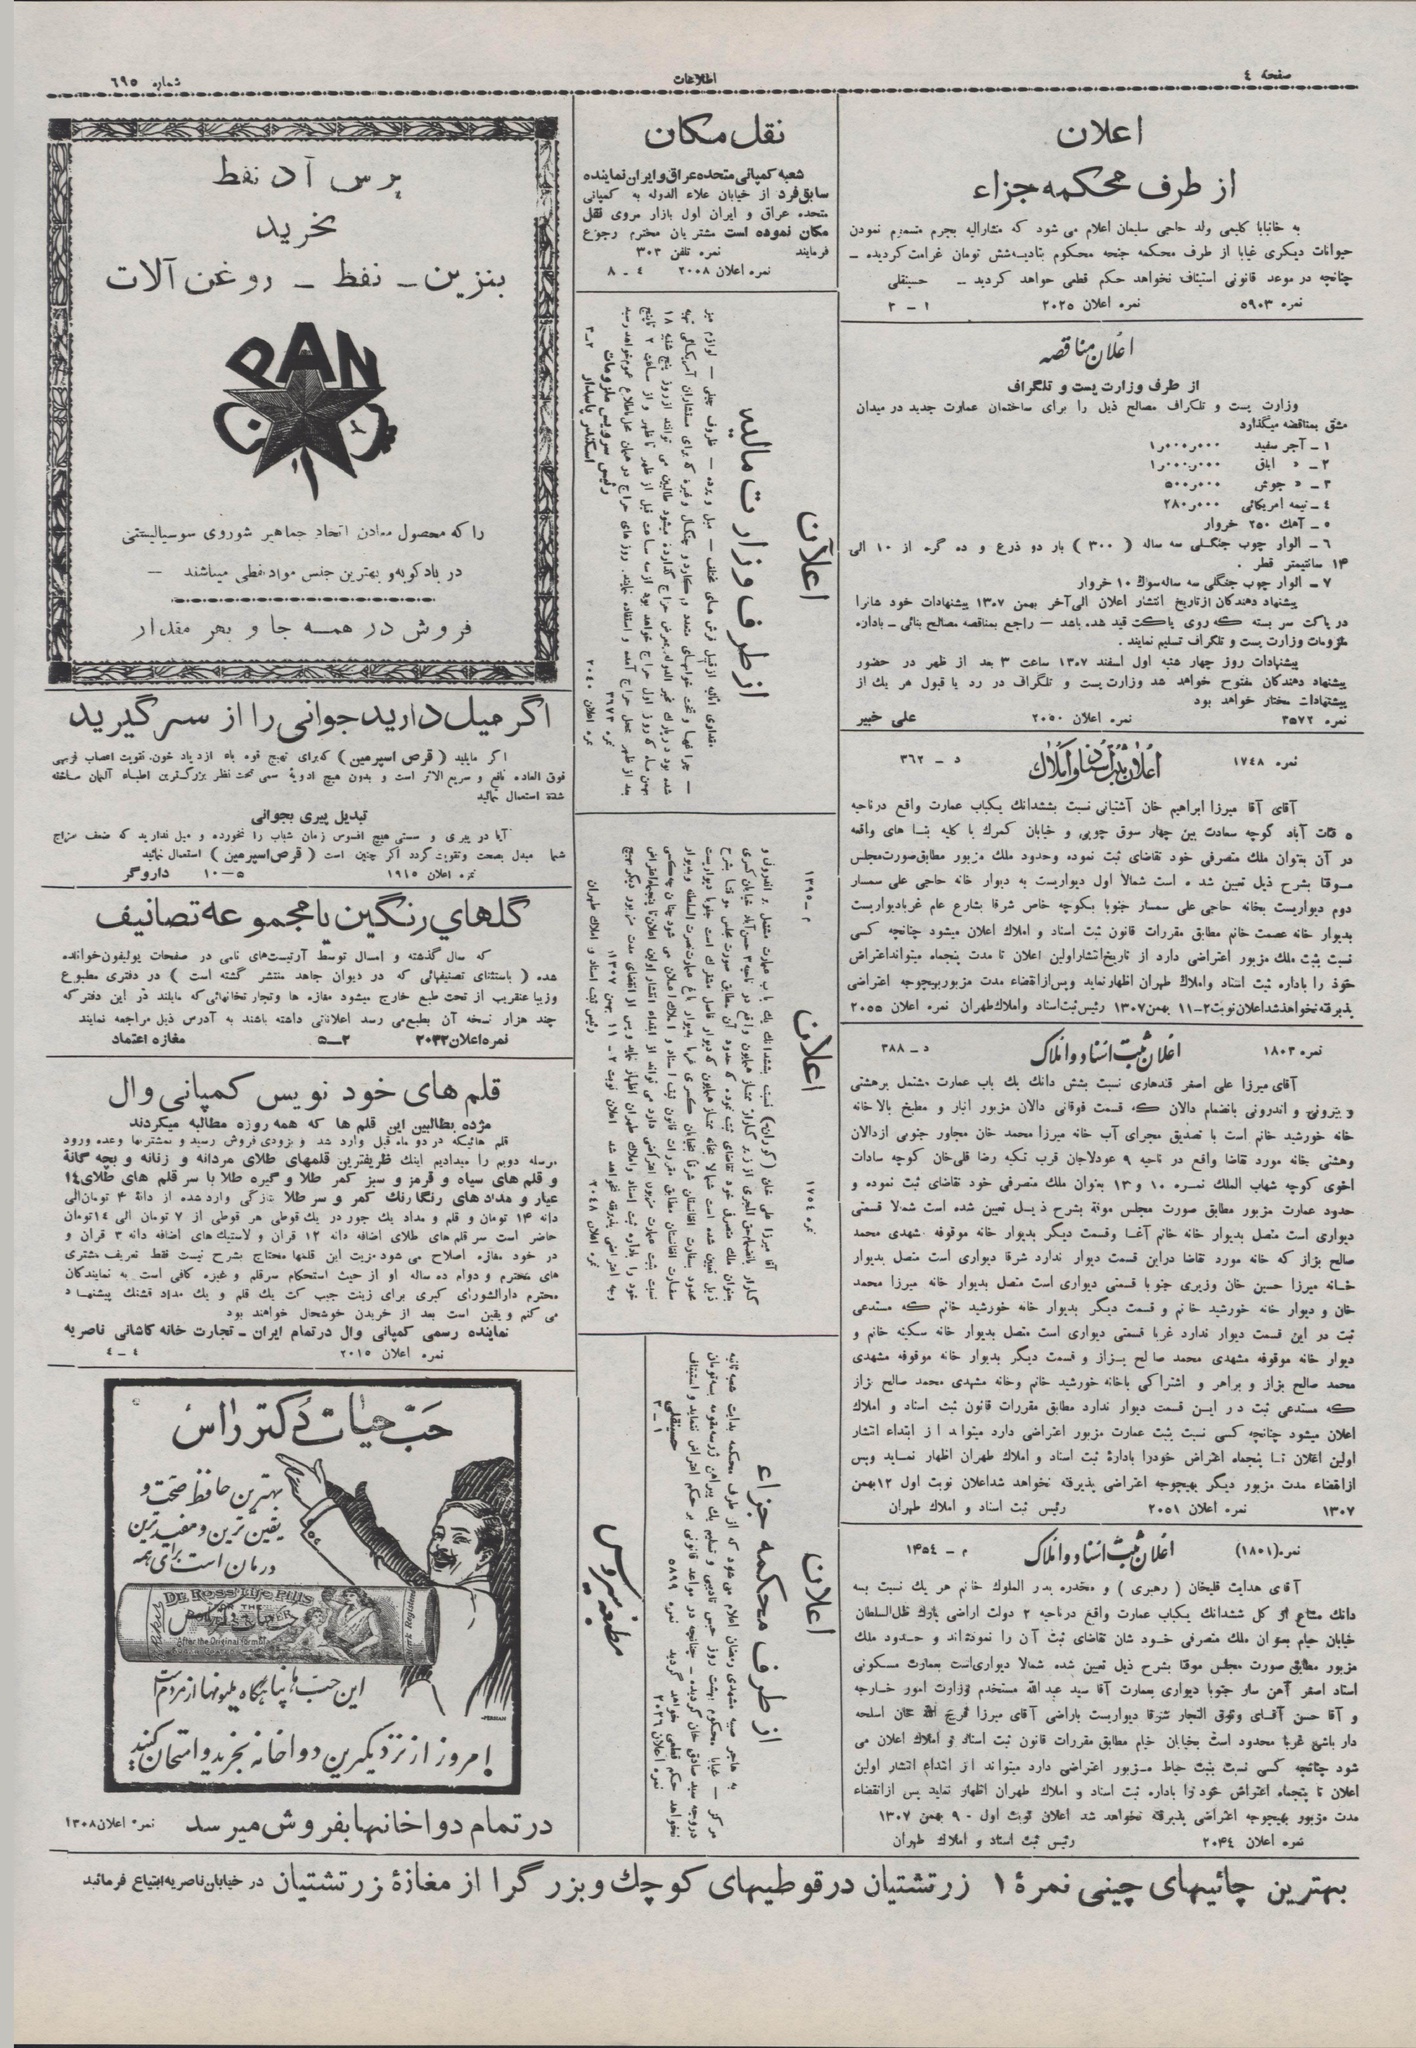 صفحه ٤
اطلاعات
شماره ٦٩٥
اعلان
از طرف محکمه جزاء
به خانبابا کلیمی ولد حاجی سلیمان اعلام می شود که مشارالیه بجرم مسموم نمودن
حیوانات دیگری غیابا از طرف محکمه جنحه محکوم بتادیه شش تومان غرامت گردیده ـ
چنانچه در موعد قانونی استیناف نخواهد حکم قطعی خواهد گردید ـ حسینقلی
نمره ٥٩٠٣ نمره اعلان ٢٠٢٥ ١ ـ ٢
اعلان مناقصه
از طرف وزارت پست و تلگراف
وزارت پست و تلگراف مصالح ذیل را برای ساختمان عمارت جدید در میدان
مشق بمناقصه میگذارد
١ ـ آجر سفید ١ر٠٠٠ر٠٠٠
٢ ـ » ابلق ١ر٠٠٠ر٠٠٠
٣ ـ » جوش ٥٠٠ر٠٠٠
٤ ـ نیمه امریکائی ٢٨٠ر٠٠٠
٥ ـ آهك ٢٥٠ خروار
٦ ـ الوار چوب جنگلی سه ساله ( ٣٠٠ ) بار دو ذرع و ده گره از ١٠ الی
١٤ سانتیمتر قطر .
٧ ـ الوار چوب جنگلی سه ساله سوك ١٠ خروار
پیشنهاد دهندگان از تاریخ انتشار اعلان الی آخر بهمن ١٣٠٧ پیشنهادات خود شانرا
در پاکت سر بسته که روی پاکت قید شده باشد ـ راجع بمناقصه مصالح بنائی ـ باداره
ملزومات وزارت پست و تلگراف تسلیم نمایند .
پیشنهادات روز چهار شنبه اول اسفند ١٣٠٧ ساعت ٣ بعد از ظهر در حضور
پیشنهاد دهندگان مفتوح خواهد شد وزارت پست و تلگراف در رد یا قبول هر یك از
پیشنهادات مختار خواهد بود
نمره ٣٥٧٢ نمره اعلان ٢٠٥٠ علی خبیر
نمره ١٧٤٨ اعلان ثبت اسناد و املاك د ـ ٣٦٢
آقای آقا میرزا ابراهیم خان آشتیانی نسبت بششدانك یکباب عمارت واقع در ناحیه
٥ قنات آباد کوچه سعادت بین چهار سوق چوبی و خیابان گمرك با کلیه بنا های واقعه
در آن بعنوان ملك متصرفی خود تقاضای ثبت نموده وحدود ملك مزبور مطابق صورت مجلس
موقتا بشرح ذیل تعین شده است شمالا اول دیواریست به دیوار خانه حاجی علی سمسار
دوم دیواریست بخانه حاجی علی سمسار جنوبا بکوچه خاص شرقا بشارع عام غربا دیواریست
بدیوار خانه عصمت خانم مطابق مقررات قانون ثبت اسناد و املاك اعلان میشود چنانچه کسی
نسبت بثبت ملك مزبور اعتراضی دارد از تاریخ انتشار اولین اعلان تا مدت پنجماه میتواند اعتراض
خود را باداره ثبت اسناد واملاك طهران اظهار نماید وپس از انقضاء مدت مزبور بهیچوجه اعتراضی
پذیرفته نخواهد شد اعلان نوبت ٢ـ ١١ بهمن ١٣٠٧ رئیس ثبت اسناد و املاك طهران نمره اعلان ٢٠٥٥
نمره ١٨٠٣ اعلان ثبت اسناد و املاك د ـ ٣٨٨
آقای میرزا علی اصغر قندهاری نسبت بشش دانك یك باب عمارت مشتمل برهشتی
و بیرونی و اندرونی بانضمام دالان که قسمت فوقانی دالان مزبور انبار و مطبخ بالاخانه
خانه خورشید خانم است با تصدیق مجرای آب خانه میرزا محمد خان مجاور جنوبی از دالان
وهشتی خانه مورد تقاضا واقع در ناحیه ٩ عودلاجان قرب تکیه رضا قلی خان کوچه سادات
اخوی کوچه شهاب الملك نمره ١٠ و ١٣ بعنوان ملك متصرفی خود تقاضای ثبت نموده و
حدود عمارت مزبور مطابق صورت مجلس موقة بشرح ذیل تعین شده است شمالا قسمتی
دیواری است متصل بدیوار خانه خانم آغا وقسمت دیگر بدیوار خانه موقوفه مشهدی محمد
صالح بزاز که خانه مورد تقاضا دراین قسمت دیوار ندارد شرقا دیواری است متصل بدیوار
خانه میرزا حسین خان وزیری جنوبا قسمتی دیواری است متصل بدیوار خانه میرزا محمد
خان و دیوار خانه خورشید خانم و قسمت دیگر بدیوار خانه خورشید خانم که مستدعی
ثبت در این قسمت دیوار ندارد غربا قسمتی دیواری است متصل بدیوار خانه سکینه خانم و
دیوار خانه موقوفه مشهدی محمد صالح بزاز و قسمت دیگر بدیوار خانه موقوفه مشهدی
محمد صالح بزاز و براهر و اشتراکی باخانه خورشید خانم وخانه مشهدی محمد صالح بزاز
که مستدعی ثبت در این قسمت دیوار ندارد مطابق مقررات قانون ثبت اسناد و املاك
اعلان میشود چنانچه کسی نسبت بثبت عمارت مزبور اعتراضی دارد میتواند از ابتداء انتشار
اولین اعلان تا پنجماه اعتراض خودرا بادارۀ ثبت اسناد و املاك طهران اظهار نماید وپس
ازانقضاء مدت مزبور دیگر بهیچوجه اعتراضی پذیرفته نخواهد شد اعلان نوبت اول ١٢ بهمن
١٣٠٧ نمره اعلان ٢٠٥١ رئیس ثبت اسناد و املاك طهران
نمره (١٨٠١) اعلان ثبت اسناد و املاك م ـ ١٤٥٤
آقای هدایت قلیخان ( رهبری ) و مخدره بدر الملوك خانم هر یك نسبت بسه
دانك مشاع از کل ششدانك یکباب عمارت واقع در ناحیه ٢ دولت اراضی پارك ظل السلطان
خیابان خیام بعنوان ملك متصرفی خود شان تقاضای ثبت آن را نموده اند و حدود ملك
مزبور مطابق صورت مجلس موقتا بشرح ذیل تعین شده شمالا دیواری است بعمارت مسکونی
استاد اصغر آهن ساز جنوبا دیواری بعمارت آقا سید عبدالله مستخدم وزارت امور خارجه
و آقا حسن آقای وثوق التجار شرقا دیواریست باراضی آقای میرزا فرج الله خان اسلحه
دار باشی غربا محدود است بخیابان خیام مطابق مقررات قانون ثبت اسناد و املاك اعلان می
شود چنانچه کسی نسبت بثبت حیاط مزبور اعتراضی دارد میتواند از ابتداء انتشار اولین
اعلان تا پنجماه اعتراض خود را باداره ثبت اسناد و املاك طهران اظهار نماید پس از انقضاء
مدت مزبور بهیچوجه اعتراضی پذیرفته نخواهد شد اعلان نوبت اول ـ ٩ بهمن ١٣٠٧
نمره اعلان ٢٠٤٤ رئیس ثبت اسناد و املاك طهران
نقل مکان
شعبه کمپانی متحده عراق و ایران نماینده
سابق فرد از خیابان علاء الدوله به کمپانی
متحده عراق و ایران اول بازار مروی نقل
مکان نموده است مشتریان محترم رجوع
فرمایند نمره تلفن ٣٠٣
نمره اعلان ٢٠٠٨ ٤ ـ ٨
اعلان
از طرف وزارت مالیه
مقداری اثاثیه از قبیل فرش های مختلف ـ مبل و پرده ـ ظروف چینی ـ لوازم میز
ـ چراغها و تخت خوابهای متعدد و کارد و چنگال و غیره که برای مستشاران آمریکائی تهیه
شده بود در پارك مخبر الدوله بمعرض حراج گذارده میشود طالبین می توانند از روز پنج شنبه ١٨
بهمن ماه که روز اول حراج خواهد بود از سه ساعت قبل از ظهر تا ظهر و از ساعت ٢ تا پنج
بعد از ظهر بمحل حراج آمده و استفاده نمایند. روز های حراج در همان محل باطلاع عموم خواهد رسید
نمره ٣٩٧٣ رئیس سرویس ملزومات
نمره اعلان ٢٠٤٠ اسکندر پاسدار ٢ـ٣
اعلان
نمره ١٧٥٤ م ـ ١٣٩٥
آقا میرزا علی خان (کوران) نسبت بششدانك یك باب عمارت مشتمل بر اندرونی و
عمارت سفارت افغانستان شرقا بخیابان کسری غربا بدیوار باغ عمارت نصرت السلطنه وبدیوار
خود را باداره ثبت اسناد واملاك طهران اظهار نماید و پس از انقضای مدت مزبور دیگر بهیچ
وجه اعتراضی پذیرفته نخواهد شد اعلان نوبت ٢ ـ ١١ بهمن ١٣٠٧
نمره اعلان ٢٠٤٨ رئیس ثبت اسناد و املاك طهران
اعلان
از طرف محکمه جزاء
به هاجر صبیه مشهدی رمضان اعلام می شود که از طرف محکمه بدایت شعبه ثانیه
مرکز ـ غیابا محکوم بهشت روز حبس تادیبی و تسلیم یك پیراهن ژرسه مقومه سه تومان
دروجه سید صادق خان گردیده ـ چنانچه در مواعد قانونی بر حکم اعتراض ننماید و استیناف
نخواهد حکم قطعی خواهد گردید نمره ٥٨٩٩ حسینقلی
نمره اعلان ٢٠٢٦ ١ـ٢
مطبعه سیروس
پرس آذ نفط
بخرید
بنزین ـ نفط ـ روغن آلات
PAN
را که محصول معادن اتحاد جماهیر شوروی سوسیالیستی
در بادکوبه و بهترین جنس مواد نفطی میباشند ـ
فروش در همه جا و بهر مقدار
اگر میل دارید جوانی را از سر گیرید
اگر مایلید ( قرص اسپرمین ) که برای تهیج قوه باه ازدیاد خون. تقویت اعصاب قریبی
فوق العاده نافع و سریع الاثر است و بدون هیچ ادویۀ سمی تحت نظر بزرگترین اطباء آلمان ساخته
شده استعمال نمائید
تبدیل پیری بجوانی
آیا در پیری و سستی هیچ افسوس زمان شباب را نخورده و میل ندارید که ضعف مزاج
شما مبدل بصحت وتقویت گردد اگر چنین است ( قرص اسپرمین ) استعمال نمائید
نمره اعلان ١٩١٥ ٥ـ ١٠ داروگر
گلهای رنگین یا مجموعه تصانیف
که سال گذشته و امسال توسط آرتیست های نامی در صفحات پولیفون خوانده
شده ( باستثنای تصنیفهائی که در دیوان جاهد منتشر گشته است ) در دفتری مطبوع
وزیبا عنقریب از تحت طبع خارج میشود مغازه ها وتجارتخانهائی که مایلند در این دفتر که
چند هزار نسخه آن بطبع می رسد اعلاناتی داشته باشند به آدرس ذیل مراجعه نمایند
نمره اعلان ٢٠٣٢ ٢ـ٥ مغازه اعتماد
قلم های خود نویس کمپانی وال
مژده بطالبین این قلم ها که همه روزه مطالبه میکردند
قلم هائیکه در دو ماه قبل وارد شد و بزودی فروش رسید و بمشتریها وعده ورود
مرسله دویم را میدادیم اینك ظریفترین قلمهای طلای مردانه و زنانه و بچه گانة
و قلم های سیاه و قرمز و سبز کمر طلا و گیره طلا با سر قلم های طلای ١٤
عیار و مداد های رنگارنك کمر و سر طلا بتازگی وارد شده از دانۀ ٤ تومان الی
دانه ١٤ تومان و قلم و مداد یك جور در یك قوطی هر قوطی از ٧ تومان الی ١٤ تومان
حاضر است سر قلم های طلای اضافه دانه ١٢ قران و لاستیك های اضافه دانه ٣ قران و
در خود مغازه اصلاح می شود مزیت این قلمها محتاج بشرح نیست فقط تعریف مشتری
های محترم و دوام ده ساله او از حیث استحکام سرقلم و غیره کافی است به نمایندگان
محترم دارالشورای کبری برای زینت جیب کت یك قلم و یك مداد قشنك پیشنهاد
می کنم و یقین است بعد از خریدن خوشحال خواهند بود
نماینده رسمی کمپانی وال در تمام ایران ـ تجارت خانه کاشانی ناصریه
نمره اعلان ٢٠١٥ ٤ ـ ٤
حب حیات دکتر راس
بهترین حافظ صحت و
یقین ترین و مفیدترین
درمان است برای همه
Dr. Ross' Life Pills
After the Original formula
این حب ها پناهگاه ملیونها از مردم است
PERSIAN
امروز از نزدیکترین دواخانه بخرید و امتحان کنید
در تمام دواخانها بفروش میرسد نمره اعلان ١٣٠٨
بهترین چائیهای چینی نمرۀ ١ زرتشتیان در قوطیهای کوچك و بزرگ را از مغازۀ زرتشتیان در خیابان ناصریه ابتیاع فرمائید